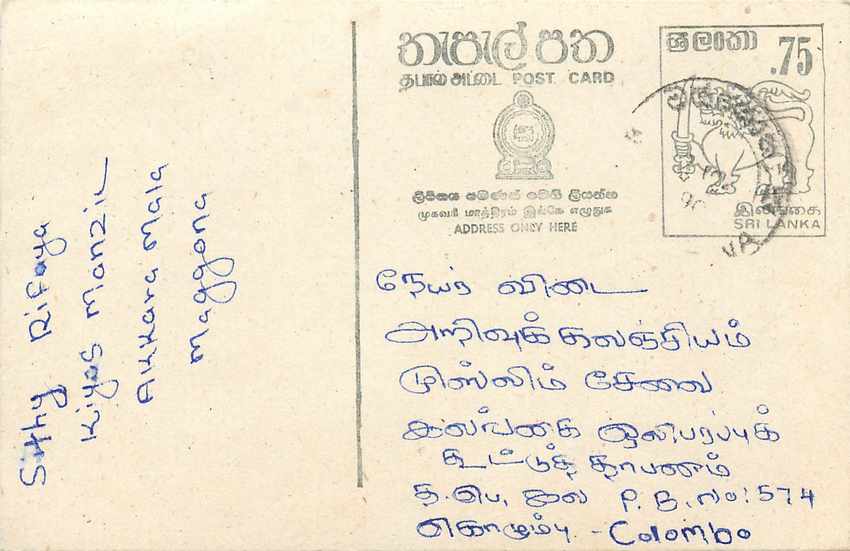 තැපැල් පත
தபால் அட்டை POST CARD
ලිපිනය පමණක් මෙහි ලියන්න
முகவரி மாத்திரம் இங்கே எழுதுக
ADDRESS ONLY HERE
ශ්‍රී ලංකා
.75
இலங்கை
SRI LANKA
Sithy Rifaya
Kiyas Manzil
Akkara Mala
Maggona
நேயர் விடை
அறிவுக் களஞ்சியம்
முஸ்லிம் சேவை
இலங்கை ஒலிபரப்புக்
கூட்டுத் தாபனம்
த. பெ. இல P. B. No: 574
கொழும்பு - Colombo